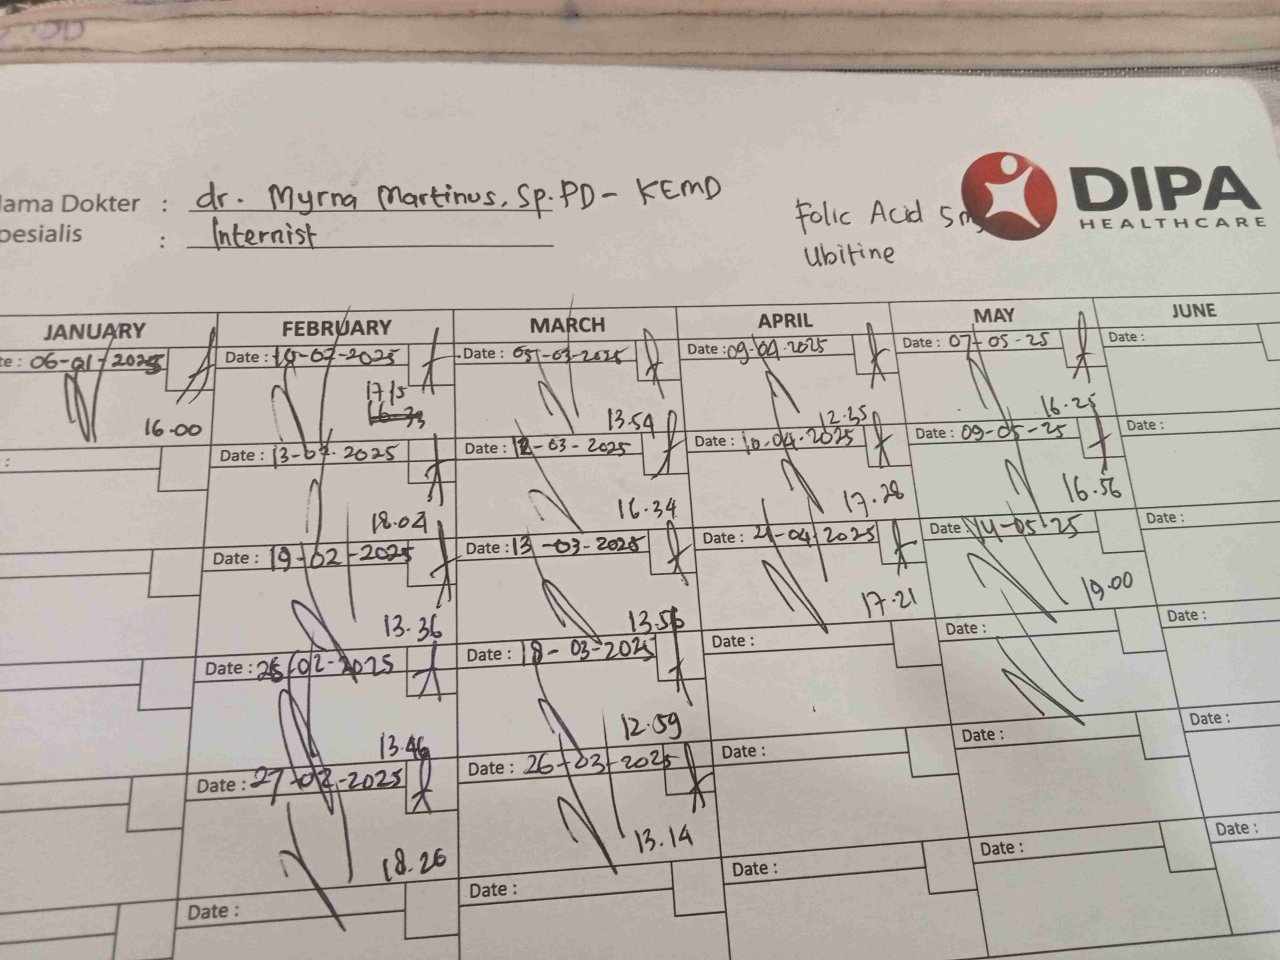 ama Dokter : dr. Myrna Martinus, Sp.PD - KEMD
pesialis : Internist
Folic Acid 5mg
Ubitine
DIPA
HEALTHCARE
JANUARY FEBRUARY MARCH APRIL MAY JUNE
te: 06-01-2025 Date: Date: 05-03-2025 Date: 09-04-2025 Date: 07-05-25 Date:
16.00 17.15 13.54 12.35 16.25
: Date: 13-02-2025 Date: 12-03-2025 Date: 10-04-2025 Date: 09-05-25 Date:
18.04 16.34 17.28 16.56
Date: 19-02-2025 Date: 13-03-2025 Date: 21-04-2025 Date: 14-05-25 Date:
13.36 13.56 17.21 19.00
Date: 26-02-2025 Date: 18-03-2025 Date: Date: Date:
13.46 12.59
Date: 27-02-2025 Date: 26-03-2025 Date: Date: Date:
18.26 13.14
Date: Date: Date: Date: Date: